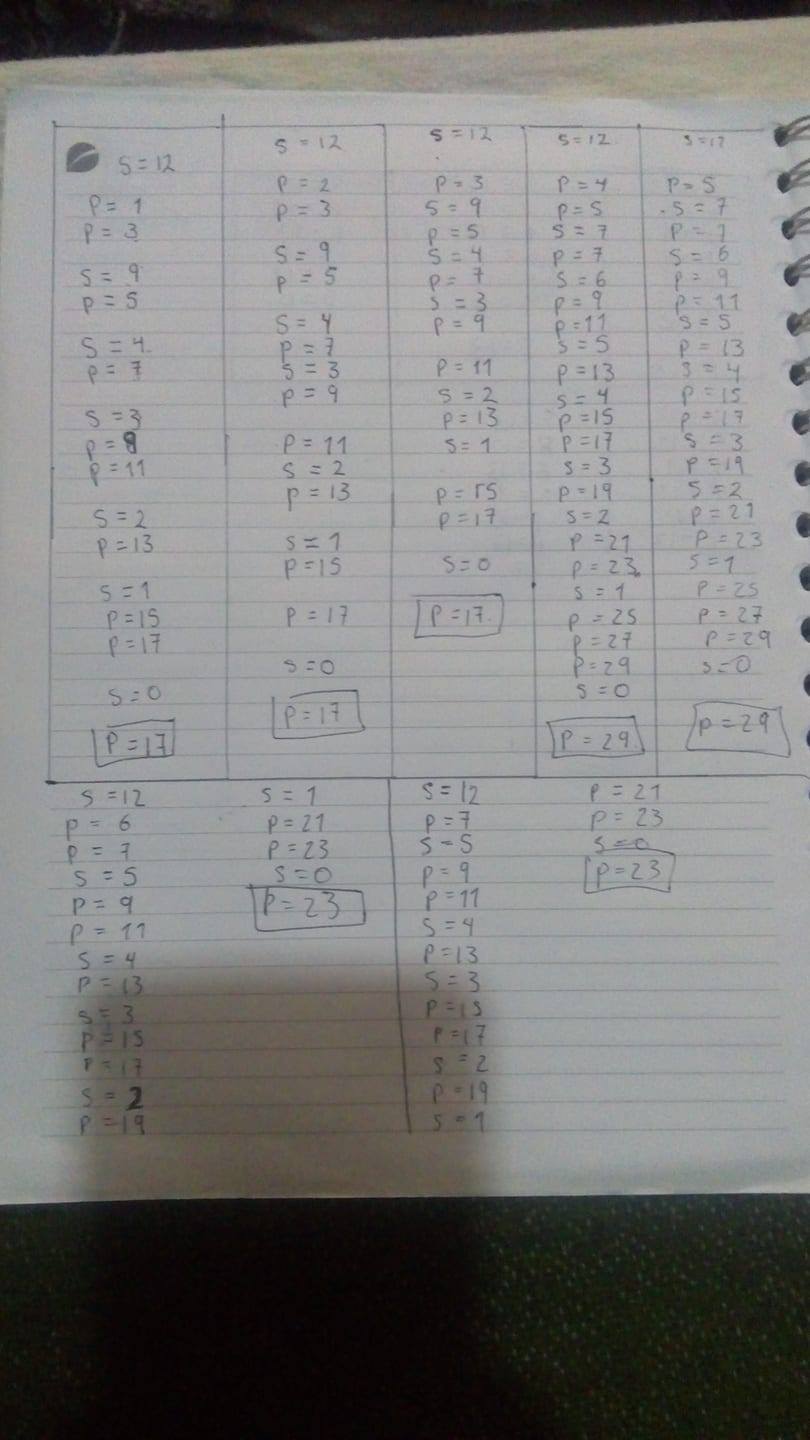 S=12
P= 1
P= 3
S= 9
P= 5
S= 4
P= 7
S= 3
P= 9
P= 11
S= 2
P= 13
S= 1
P= 15
P= 17
S= 0
P= 17
S= 12
P= 2
P= 3
S= 9
P= 5
S= 4
P= 7
S= 3
P= 9
P= 11
S= 2
P= 13
S= 1
P= 15
P= 17
S= 0
P= 17
S= 12
P= 3
S= 9
P= 5
S= 4
P= 7
S= 3
P= 9
P= 11
S= 2
P= 13
S= 1
P= 15
P= 17
S= 0
P= 17
S= 12
P= 4
P= 5
S= 7
P= 7
S= 6
P= 9
P= 11
S= 5
P= 13
S= 4
P= 15
P= 17
S= 3
P= 19
S= 2
P= 21
P= 23
S= 1
P= 25
P= 27
P= 29
S= 0
P= 29
S= 12
P= 5
S= 7
P= 7
S= 6
P= 9
P= 11
S= 5
P= 13
S= 4
P= 15
P= 17
S= 3
P= 19
S= 2
P= 21
P= 23
S= 1
P= 25
P= 27
P= 29
S= 0
P= 29
S= 12
P= 6
P= 7
S= 5
P= 9
P= 11
S= 4
P= 13
S= 3
P= 15
P= 17
S= 2
P= 19
S= 1
P= 21
P= 23
S= 0
P= 23
S= 12
P= 7
S= 5
P= 9
P= 11
S= 4
P= 13
S= 3
P= 15
P= 17
S= 2
P= 19
S= 1
P= 21
P= 23
S= 0
P= 23